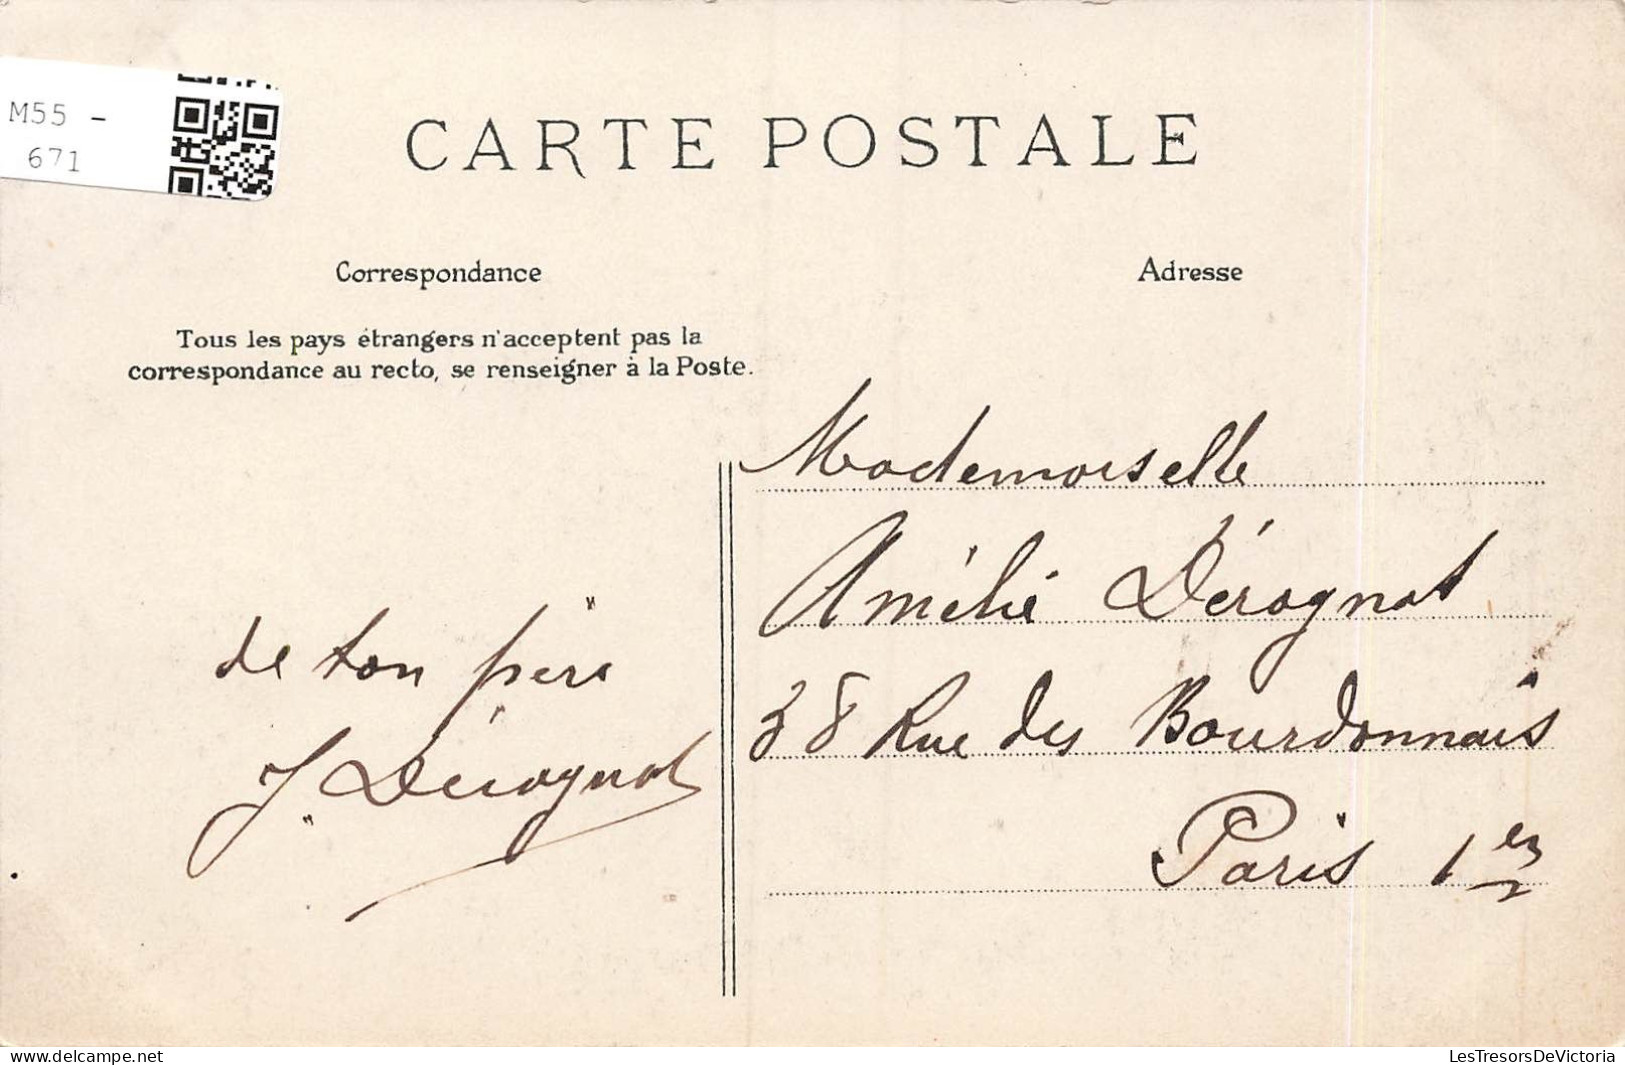 M55 -
671
CARTE POSTALE
Correspondance
Adresse
Tous les pays étrangers n'acceptent pas la
correspondance au recto, se renseigner à la Poste.
de ton père
J. Dérognat
Mademoiselle
Amélie Dérognat
38 Rue des Bourdonnais
Paris 1er
delcampe.net
LesTresorsDeVictoria